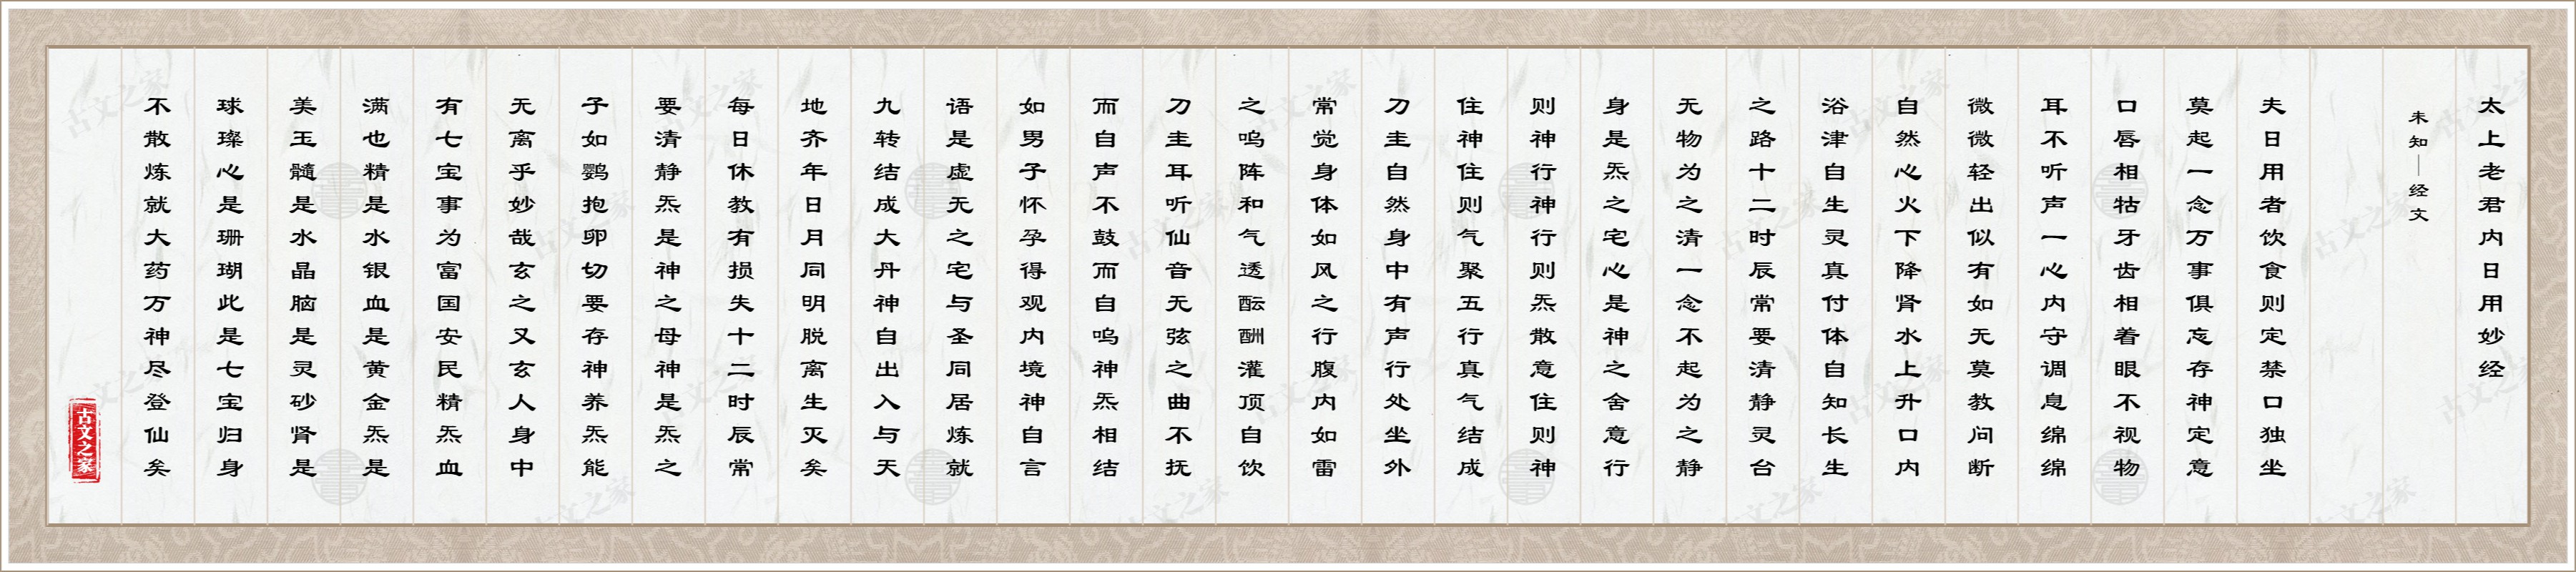 太上老君内日用妙经
未知｜经文
夫日用者饮食则定禁口独坐
莫起一念万事俱忘存神定意
口唇相牯牙齿相着眼不视物
耳不听声一心内守调息绵绵
微微轻出似有如无莫教问断
自然心火下降肾水上升口内
浴津自生灵真付体自知长生
之路十二时辰常要清静灵台
无物为之清一念不起为之静
身是炁之宅心是神之舍意行
则神行神行则炁散意住则神
住神住则气聚五行真气结成
刀圭自然身中有声行处坐外
常觉身体如风之行腹内如雷
之鸣阵和气透酝酬灌顶自饮
刀圭耳听仙音无弦之曲不抚
而自声不鼓而自鸣神炁相结
如男子怀孕得观内境神自言
语是虚无之宅与圣同居炼就
九转结成大丹神自出入与天
地齐年日月同明脱离生灭矣
每日休教有损失十二时辰常
要清静炁是神之母神是炁之
子如鹦抱卵切要存神养炁能
无离乎妙哉玄之又玄人身中
有七宝事为富国安民精炁血
满也精是水银血是黄金炁是
美玉髓是水晶脑是灵砂肾是
球璨心是珊瑚此是七宝归身
不散炼就大药万神尽登仙矣
古文之家